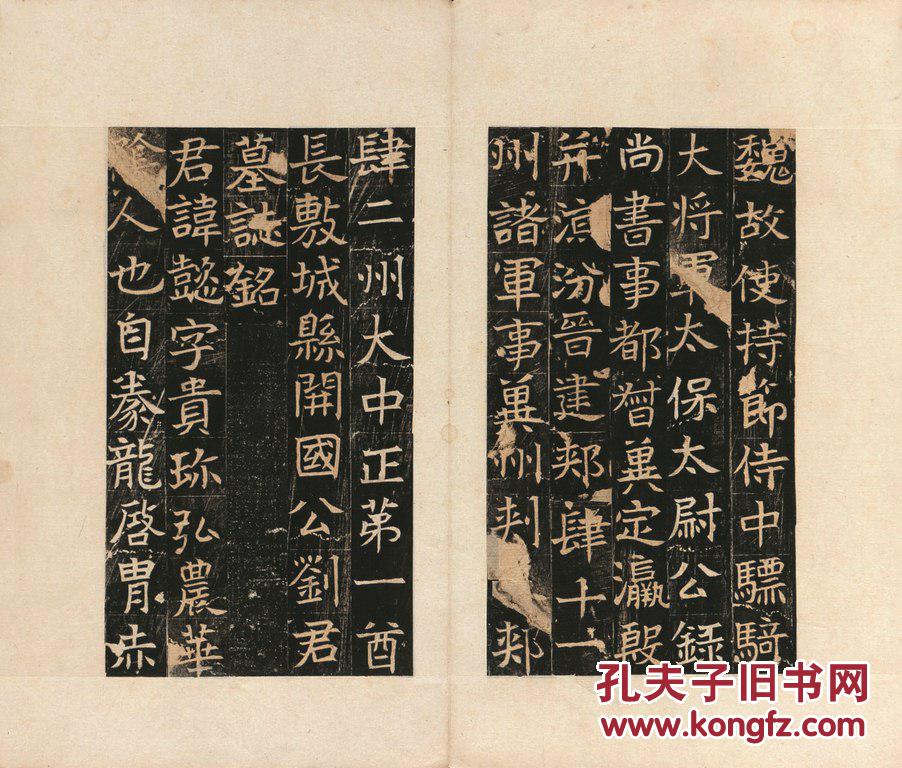 魏故使持節侍中驃騎
大将軍太保太尉公録
尚書事都督冀定瀛殷
并涼汾晉建郟肆十一
州諸軍事冀州刺郟
肆二州大中正第一酋
長敷城縣開國公劉君
墓誌銘
君諱懿字貴珎弘農華
陰人也自豢龍啓胄赤
孔夫子旧书网
www.kongfz.com